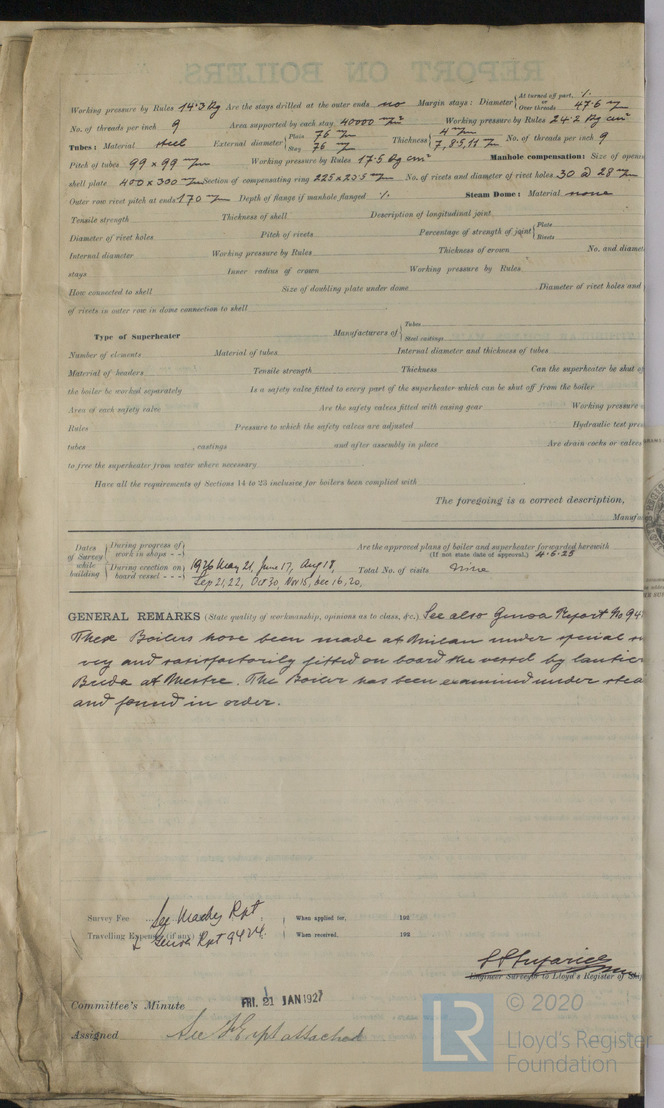 REPORT ON BOILERS
Working pressure by Rules 14.3 Kg Are the stays drilled at the outer ends no Margin stays: Diameter { At turned off part, or Over threads 47.6 m/m
No. of threads per inch 9 Area supported by each stay 40000 m/m² Working pressure by Rules 24.2 Kg cm²
Tubes: Material steel External diameter { Plain 76 m/m Stay 76 m/m Thickness { 4 m/m 7, 8.5, 11 m/m No. of threads per inch 9
Pitch of tubes 99 x 99 m/m Working pressure by Rules 17.5 Kg cm² Manhole compensation: Size of openi
shell plate 400 x 300 m/m Section of compensating ring No. of rivets and diameter of rivet holes 30 @ 28 m/m
Outer row rivet pitch at ends 170 m/m Depth of flange if manhole flanged Steam Dome: Material none
Tensile strength Thickness of shell Description of longitudinal joint
Diameter of rivet holes Pitch of rivets Percentage of strength of joint { Plate Rivets
Internal diameter Working pressure by Rules Thickness of crown No. and diamet
stays Inner radius of crown Working pressure by Rules
How connected to shell Size of doubling plate under dome Diameter of rivet holes and
of rivets in outer row in dome connection to shell
Type of Superheater Manufacturers of { Tubes Steel castings
Number of elements Material of tubes Internal diameter and thickness of tubes
Material of headers Tensile strength Thickness Can the superheater be shut of
the boiler be worked separately Is a safety valve fitted to every part of the superheater which can be shut off from the boiler
Area of each safety valve Are the safety valves fitted with easing gear Working pressure
Rules Pressure to which the safety valves are adjusted Hydraulic test pres
tubes , castings and after assembly in place Are drain cocks or valves
to free the superheater from water where necessary
Have all the requirements of Sections 14 to 25 inclusive for boilers been complied with
The foregoing is a correct description,
Manufac
Dates of Survey while building { During progress of work in shops - - } { During erection on board vessel - - - } 1926 May 21, June 17, Aug 18, Sep 21, 22, Oct 30 Nov 15, Dec 16, 20,
Are the approved plans of boiler and superheater forwarded herewith (If not state date of approval.) 4.6.25
Total No. of visits nine
GENERAL REMARKS (State quality of workmanship, opinions as to class, &c.) See also Genoa Report No 94
These Boilers have been made at Milan under special
vey and satisfactorily fitted on board the vessel by Cantier
Breda at Mestre. The Boiler has been examined under stea
and found in order.
Survey Fee See Machy Rpt When applied for, 192
Travelling Expenses (if any) & Genoa Rpt 9424. When received, 192
Engineer Surveyor to Lloyd's Register of Ship
Committee's Minute FRI. 21 JAN 1927
Assigned See F.E. rpt attached
LR © 2020
Lloyd's Register
Foundation